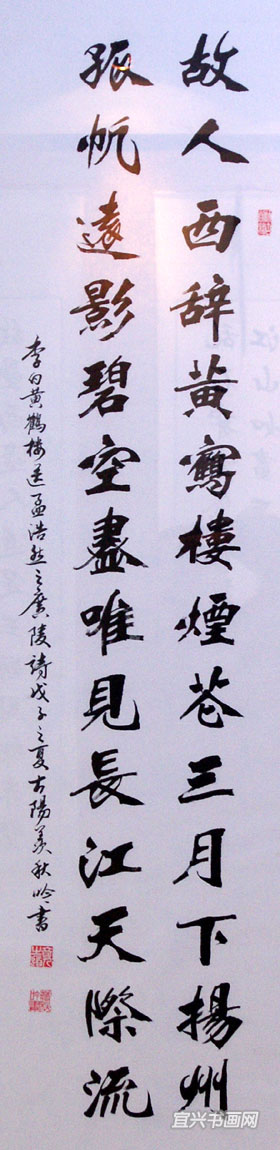 故人西辞黄鹤樓煙苍三月下揚州
孤帆遠影碧空盡唯見長江天際流
李白黄鶴樓送孟浩然之廣陵詩戊子之夏古陽羡秋吟書
宜兴书画网